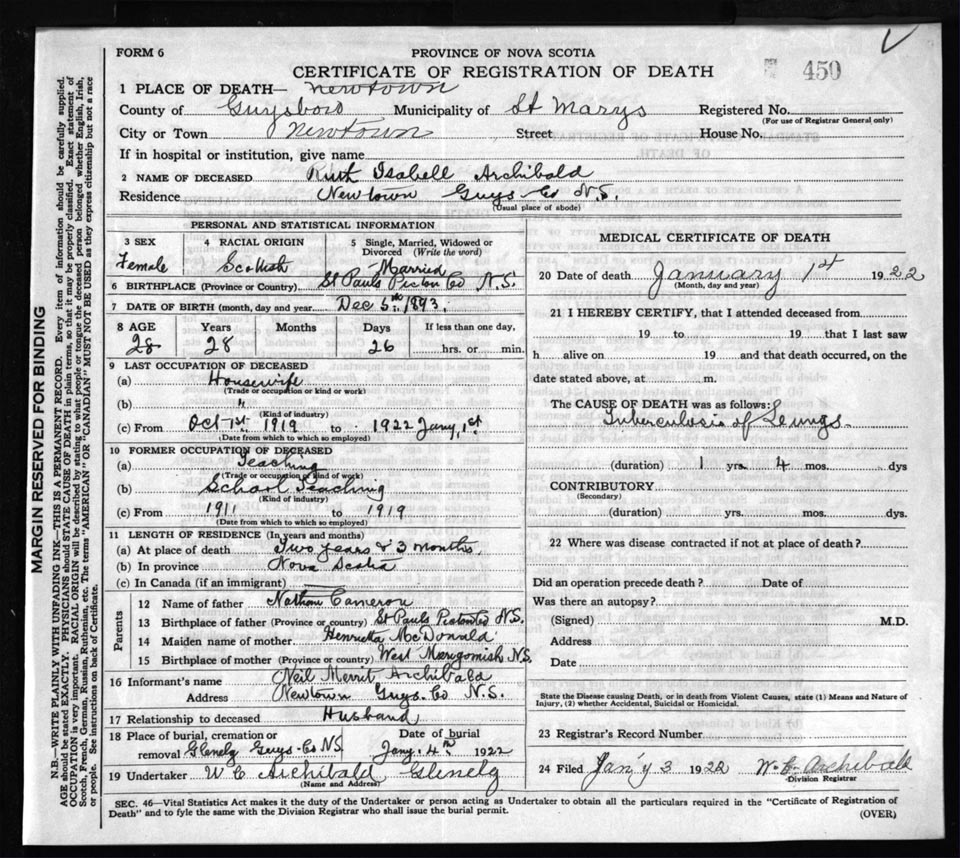 FORM 6
PROVINCE OF NOVA SCOTIA
CERTIFICATE OF REGISTRATION OF DEATH
450
1 PLACE OF DEATH— Newtown
County of Guysboro Municipality of St Marys Registered No.
(For use of Registrar General only)
City or Town Newtown Street House No.
If in hospital or institution, give name
2 NAME OF DECEASED Ruth Isabell Archibald
Residence Newtown Guys. Co N.S.
(Usual place of abode)
PERSONAL AND STATISTICAL INFORMATION
3 SEX 4 RACIAL ORIGIN 5 Single, Married, Widowed or
Divorced (Write the word)
Female Scottish Married
6 BIRTHPLACE (Province or Country) St Pauls Pictou Co N.S.
7 DATE OF BIRTH (month, day and year Dec 5th 1893.
8 AGE Years Months Days If less than one day,
28 28 26 hrs. or min.
9 LAST OCCUPATION OF DECEASED
(a) Housewife
(Trade or occupation or kind or work)
(b) "
(Kind of industry)
(c) From Oct 1st 1919 to 1922 Jany, 1st
(Date from which to which so employed)
10 FORMER OCCUPATION OF DECEASED
(a) Teaching
(Trade or occupation or kind of work)
(b) School Teaching
(Kind of industry)
(c) From 1911 to 1919
(Date from which to which so employed)
11 LENGTH OF RESIDENCE (In years and months)
(a) At place of death Two years & 3 months.
(b) In province Nova Scotia
(c) In Canada (if an immigrant)
Parents
12 Name of father Nathan Cameron
13 Birthplace of father (Province or country) St Pauls Pictou Co N.S.
14 Maiden name of mother Henrietta McDonald
15 Birthplace of mother (Province or country) West Merigomish N.S.
16 Informant's name Neil Merrit Archibald
Address Newtown Guys. Co N.S.
17 Relationship to deceased Husband
18 Place of burial, cremation or Date of burial
removal Glenelg Guys-Co N.S. Jany. 4th 1922
19 Undertaker W C Archibald Glenelg
(Name and Address)
MEDICAL CERTIFICATE OF DEATH
20 Date of death January 1st 1922
(Month, day and year)
21 I HEREBY CERTIFY, that I attended deceased from
19 to 19 that I last saw
h alive on 19 and that death occurred, on the
date stated above, at m.
The CAUSE OF DEATH was as follows:
Tuberculosis of Lungs.
(duration) 1 yrs. 4 mos. dys
CONTRIBUTORY
(Secondary)
(duration) yrs. mos. dys.
22 Where was disease contracted if not at place of death?
Did an operation precede death? Date of
Was there an autopsy?
(Signed) M.D.
Address
Date
State the Disease causing Death, or in death from Violent Causes, state (1) Means and Nature of
Injury, (2) whether Accidental, Suicidal or Homicidal.
23 Registrar's Record Number
24 Filed Jan'y 3 1922 W. C. Archibald
Division Registrar
SEC. 46—Vital Statistics Act makes it the duty of the Undertaker or person acting as Undertaker to obtain all the particulars required in the "Certificate of Registration of
Death" and to fyle the same with the Division Registrar who shall issue the burial permit.
(OVER)
MARGIN RESERVED FOR BINDING
N.B.—WRITE PLAINLY WITH UNFADING INK—THIS IS A PERMANENT RECORD. Every item of information should be carefully supplied.
AGE should be stated EXACTLY. PHYSICIANS should STATE CAUSE OF DEATH in plain terms, so that it may be properly classified. Exact statement of
OCCUPATION is very important. RACIAL ORIGIN will be described by stating to what people or tongue the deceased person belonged whether English, Irish,
Scotch, French, German, Russian, Ruthenian, etc. The terms "AMERICAN" OR "CANADIAN" MUST NOT BE USED as they express citizenship but not a race
or people. See instructions on back of Certificate.